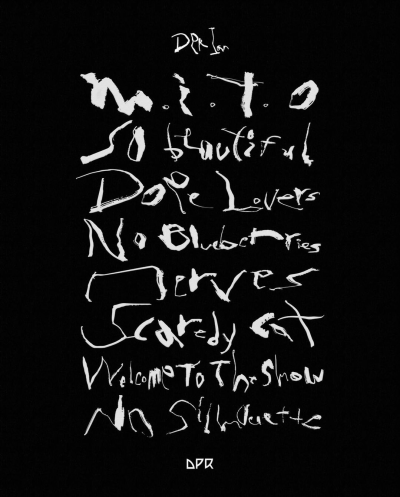 DPR Ian
M.I.T.O
So beautiful
Dope Lovers
No Blueberries
Nerves
Scaredy Cat
Welcome To The Show
No Silhouette
DPR